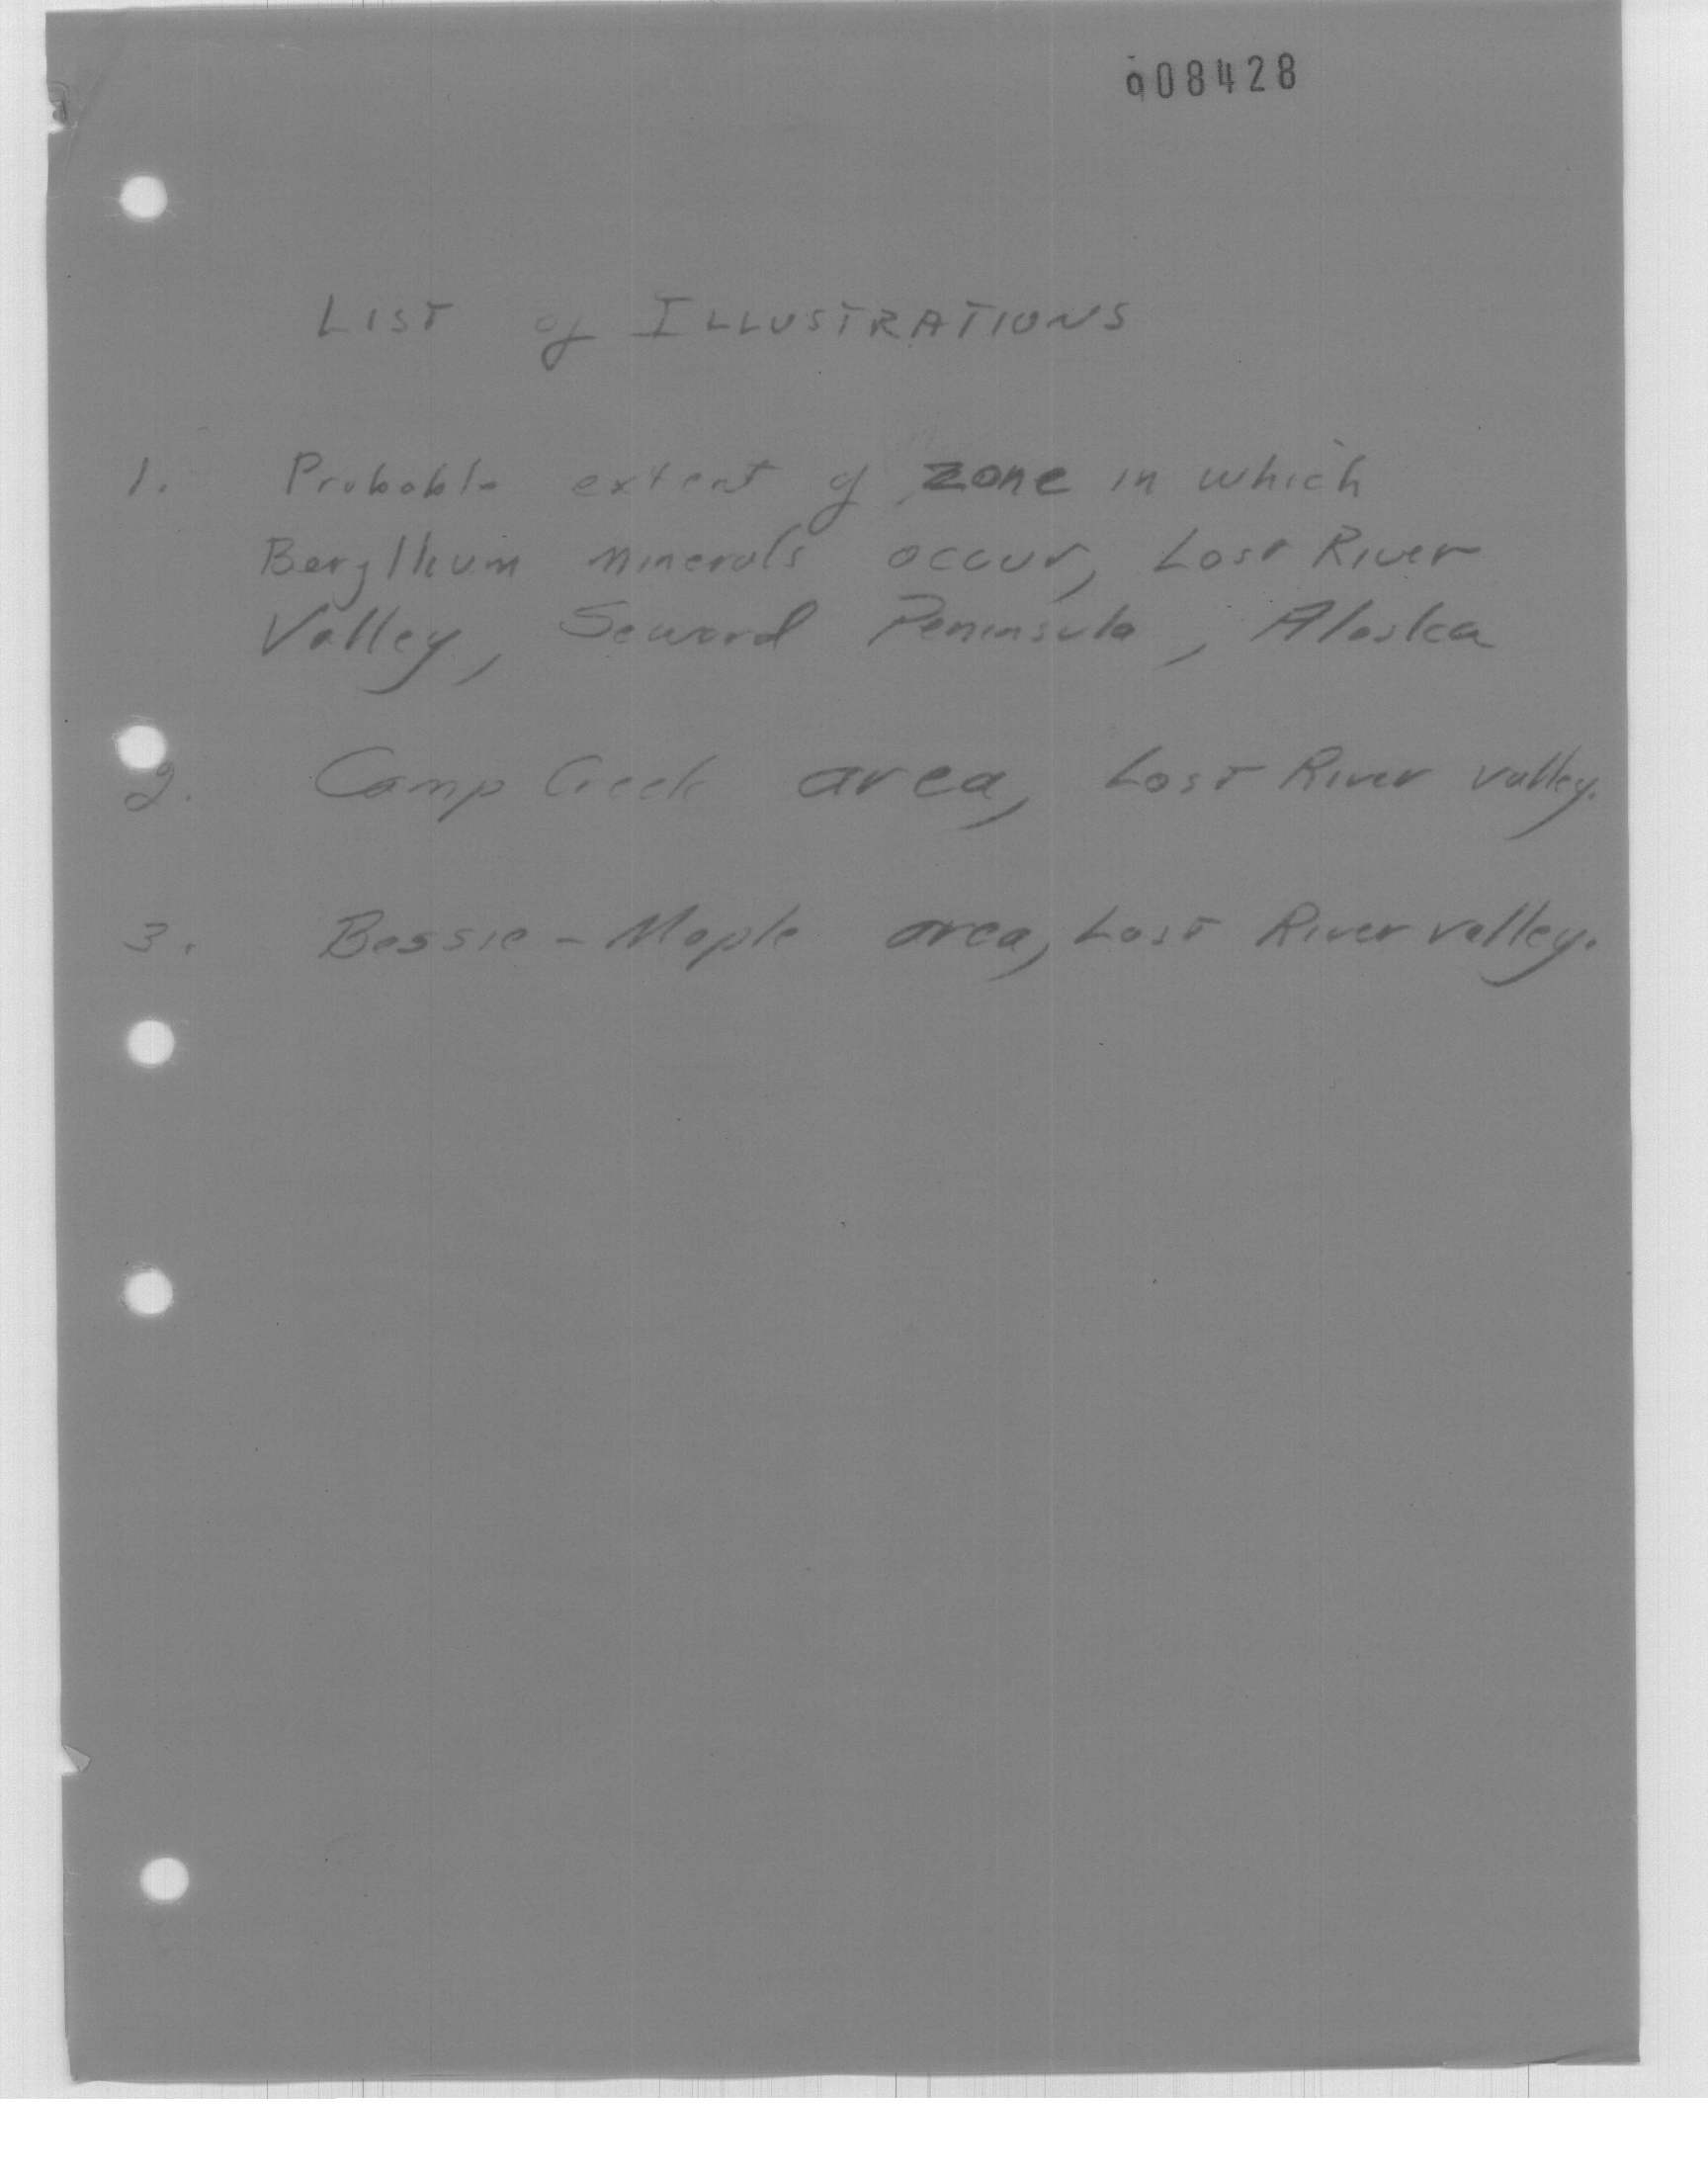 908428
LIST of ILLUSTRATIONS
1. Probable extent of zone in which
Beryllium minerals occur, Lost River
Valley, Seward Peninsula, Alaska
2. Camp Creek area, Lost River valley.
3. Bessie - Maple area, Lost River valley.